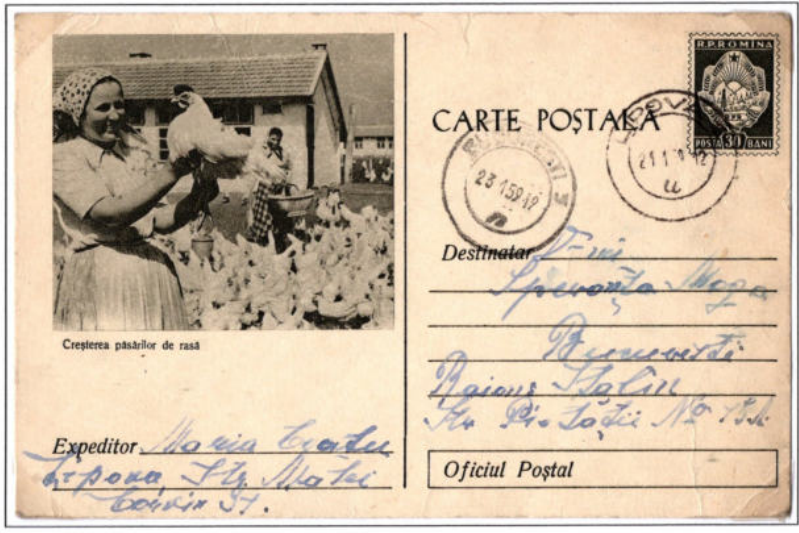 R.P.ROMÎNA
POSTA 30 BANI
CARTE POȘTALĂ
LIPOVA
BUCUREȘTI
23 1 59 19
21 1 12
Creșterea păsărilor de rasă
Destinatar D-nei
Speranța Moga
București
Raionu Stalin
Str No
Expeditor Maria
Lipova, Str. Matei
Corvin
Oficiul Poștal